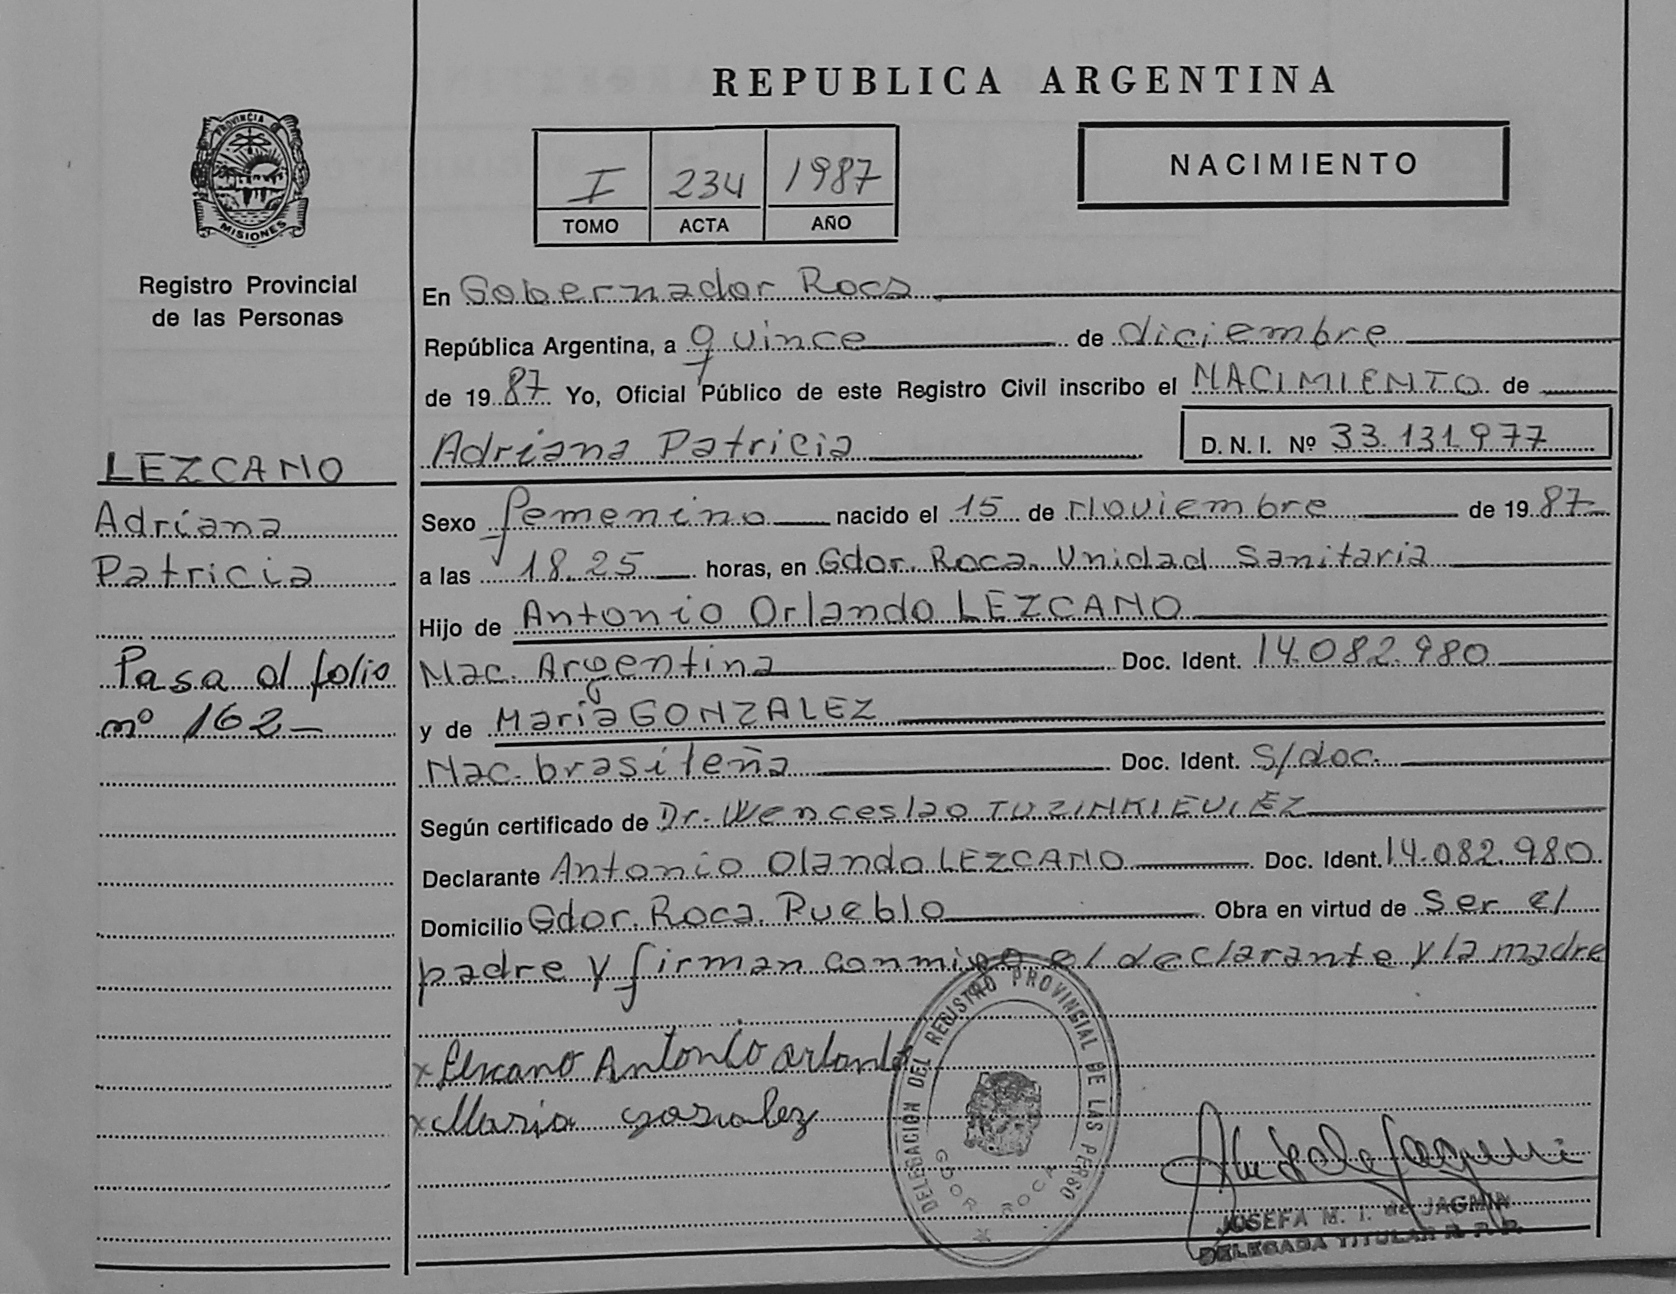 REPUBLICA ARGENTINA
PROVINCIA DE
MISIONES
Registro Provincial
de las Personas
I 234 1987
TOMO ACTA AÑO
NACIMIENTO
En Gobernador Roca
República Argentina, a quince de diciembre
de 1987 Yo, Oficial Público de este Registro Civil inscribo el NACIMIENTO de
Adriana Patricia D.N.I. Nº 33.131.977
LEZCANO
Adriana
Patricia
Pasa al folio
nº 162
Sexo femenino nacido el 15 de Noviembre de 1987
a las 18.25 horas, en Gdor. Roca. Unidad Sanitaria
Hijo de Antonio Orlando LEZCANO
Nac. Argentina Doc. Ident. 14.082.980
y de Maria GONZALEZ
Nac. brasileña Doc. Ident. S/doc.
Según certificado de Dr. Wenceslao TUZINKIEVIEZ
Declarante Antonio Olando LEZCANO Doc. Ident. 14.082.980
Domicilio Gdor. Roca. Pueblo Obra en virtud de ser el
padre y firman conmigo el declarante y la madre
x Lezcano Antonio Orlando
x Maria Gonzalez
DELEGACIÓN DEL REGISTRO PROVINSIAL DE LAS PERSO
GDOR ROCA
JOSEFA M. I. de JAGMIN
DELEGADA TITULAR R. P. P.